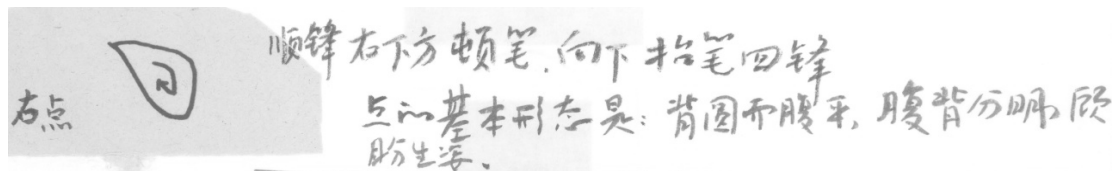 右点
顺锋右下方顿笔,向下抬笔回锋
点的基本形态是:背圆而腹平,腹背分明,顾
盼生姿。